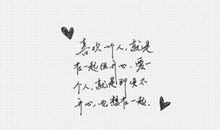 喜欢一个人，就是
在一起很开心。爱一
个人，就是即使不
开心，也想在一起。